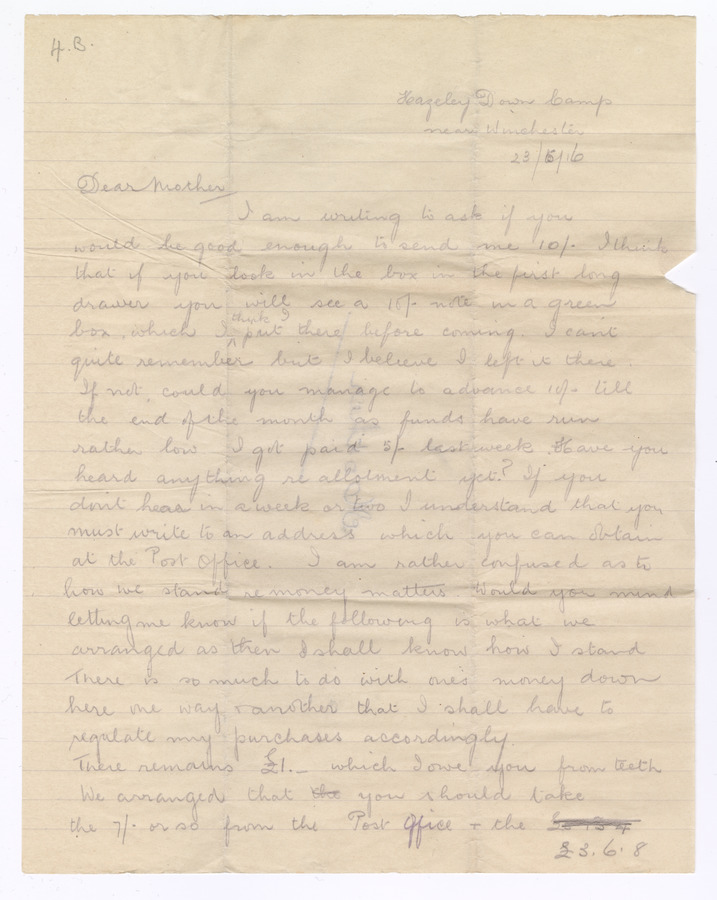 H.B.
Hazeley Down Camp
near Winchester
23/6/16
Dear Mother
I am writing to ask if you
would be good enough to send me 10/- I think
that if you look in the box in the first long
drawer you will see a 10/- note in a green
box, which I think I put there before coming. I can't
quite remember but I believe I left it there.
If not, could you manage to advance 10/- till
the end of the month as funds have run
rather low. I got paid 5/- last week. Have you
heard anything re allotment yet? If you
don't hear in a week or two I understand that you
must write to an address which you can obtain
at the Post Office. I am rather confused as to
how we stand re money matters. Would you mind
letting me know if the following is what we
arranged as then I shall know how I stand
There is so much to do with one's money down
here one way & another that I shall have to
regulate my purchases accordingly.
There remains £1.– which I owe you from teeth
We arranged that the you should take
the 7/- or so from the Post Office + the
£3.6.8